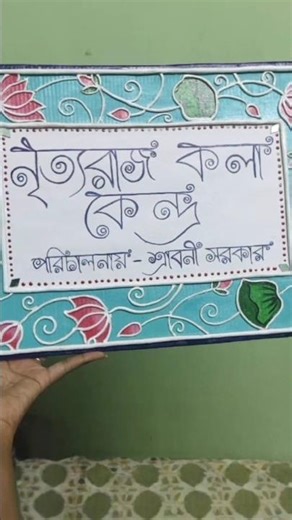 নৃত্যরাজ কলা
কেন্দ্র
পরিচালনায় - শ্রাবনী সরকার